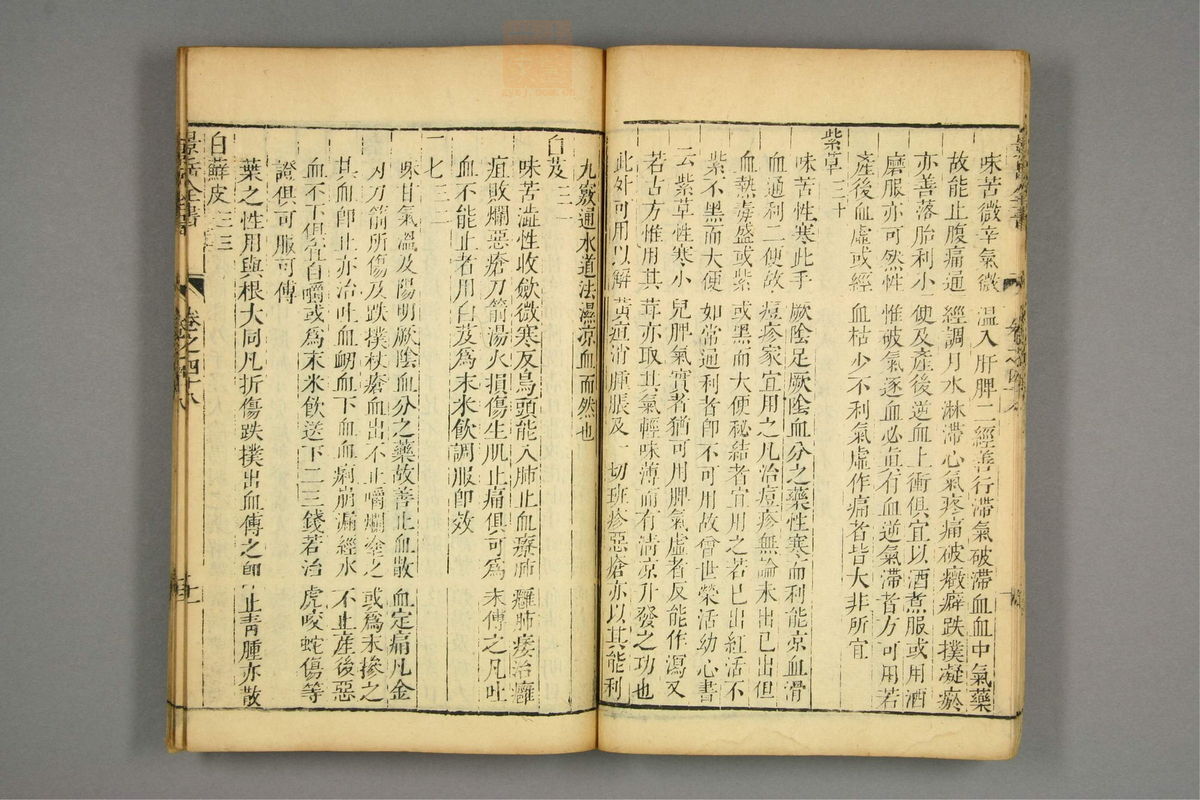 味苦微辛氣微溫入肝脾二經善行滯氣破滯血血中氣藥
故能止腹痛通經調月水淋滯心氣疼痛破癥癖跌撲凝瘀
亦善落胎利小便及產後逆血上衝俱宜以酒煑服或用酒
磨服亦可然性惟破氣逐血必真有血逆氣滯者方可用若
產後血虛或經血枯少不利氣虛作痛者皆大非所宜
紫草三十
味苦性寒此手厥陰足厥陰血分之藥性寒而利能凉血滑
血通利二便故痘疹家宜用之凡治痘疹無論未出已出但
血熱毒盛或紫或黑而大便秘結者宜用之若已出紅活不
紫不黑而大便如常通利者卽不可用故曾世榮活幼心書
云紫草性寒小兒脾氣實者猶可用脾氣虛者反能作瀉又
若古方惟用其茸亦取其氣輕味薄而有淸凉升發之功也
此外可用以解黃疸消腫脹及一切斑疹惡瘡亦以其能利
九竅通水道法濕凉血而然也
白芨三一
味苦澁性收歛微寒反烏頭能入肺止血療肺癰肺痿治癰
疽敗爛惡瘡刀箭湯火損傷生肌止痛俱可爲末傅之凡吐
血不能止者用白芨爲末米飲調服卽效
三七三二
味甘氣溫及陽明厥陰血分之藥故善止血散血定痛凡金
刃刀箭所傷及跌撲杖瘡血出不止嚼爛塗之或爲末摻之
其血卽止亦治吐血衂血下血血痢崩漏經水不止產後惡
血不下俱宜自嚼或爲末米飲送下二三錢若治虎咬蛇傷等
證俱可服可傅
葉之性用與根大同凡折傷跌撲出血傅之卽止靑腫亦散
白蘚皮三三
景岳全書
卷之四十八